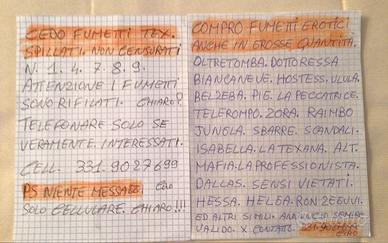 CEDO FUMETTI TEX.
SPILLATI. NON CENSURATI
N. 1. 4. 7. 8. 9.
ATTENZIONE I FUMETTI
SONO RIFILATI. CHIARO?
TELEFONARE SOLO SE
VERAMENTE. INTERESSATI.
CELL. 331.9027699
PS NIENTE MESSAGE. CIAO
SOLO CELLULARE. CHIARO!!!
COMPRO FUMETTI EROTICI
ANCHE IN GROSSE QUANTITÀ.
OLTRETOMBA. DOTTORESSA
BIANCANEVE. HOSTESS. ULULA.
BELZEBA. PIG. LA PECCATRICE.
TELEROMPO. ZORA. RAIMBO
JUNGLA. SBARRE. SCANDALI.
ISABELLA. LA TEXANA. ALT.
MAFIA. LA PROFESSIONISTA.
DALLAS. SENSI VIETATI.
HESSA. HELGA. RON
ED ALTRI SIMILI. ANNUNCIO SEMPRE
VALIDO. X CONTATT.
CIAO